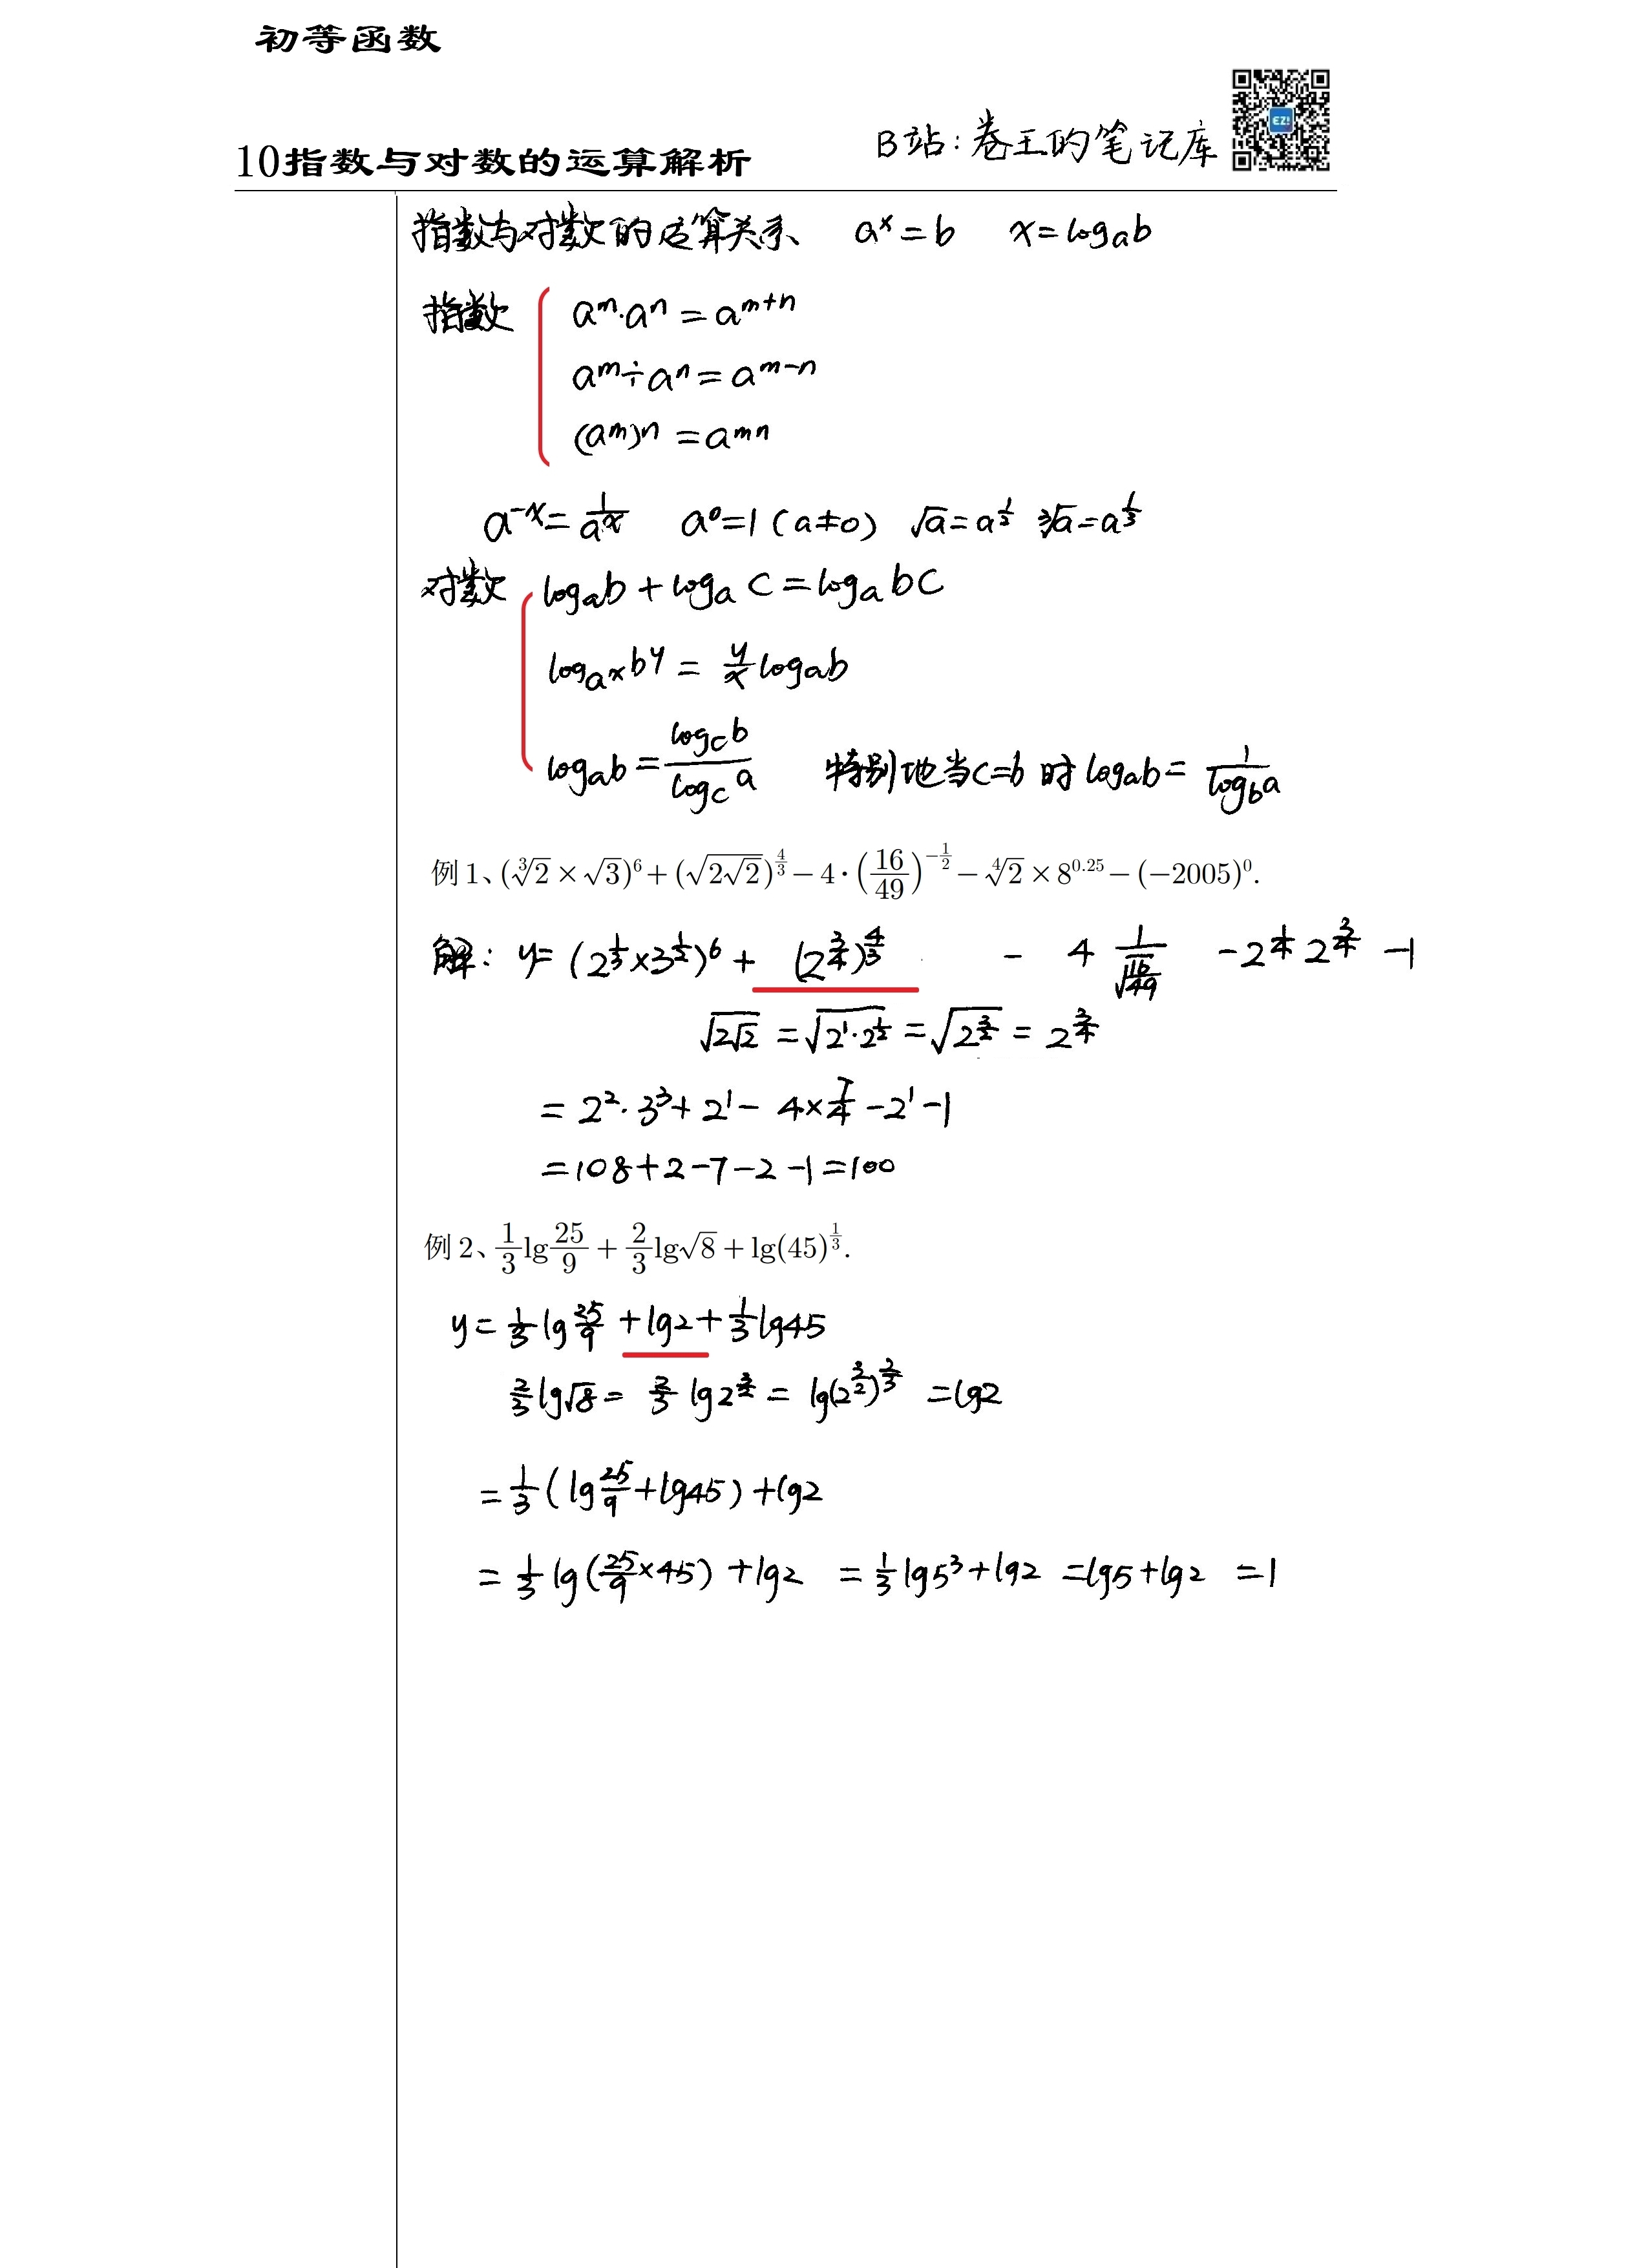 初等函数
B站：卷王的笔记库
10指数与对数的运算解析
指数与对数的运算关系 a^x=b x=log_a b
指数 a^m·a^n=a^{m+n}
a^m÷a^n=a^{m-n}
(a^m)^n=a^{mn}
a^{-x}=\frac{1}{a^x} a^0=1(a≠0) √a=a^{\frac{1}{2}} ∛a=a^{\frac{1}{3}}
对数 log_a b+log_a c=log_a bc
log_{a^x} b^y=\frac{y}{x}log_a b
log_a b=\frac{log_c b}{log_c a} 特别地当c=b时 log_a b=\frac{1}{log_b a}
例1、(\sqrt[3]{2}×\sqrt{3})^6+(\sqrt{2\sqrt{2}})^{\frac{4}{3}}-4·(\frac{16}{49})^{-\frac{1}{2}}-\sqrt[4]{2}×8^{0.25}-(-2005)^0.
解：y=(2^{\frac{1}{3}}×3^{\frac{1}{2}})^6+(2^{\frac{3}{4}})^{\frac{4}{3}} - 4\frac{1}{\sqrt{\frac{16}{49}}} -2^{\frac{1}{4}}2^{\frac{3}{4}} -1
\sqrt{2\sqrt{2}}=\sqrt{2^1·2^{\frac{1}{2}}}=\sqrt{2^{\frac{3}{2}}}=2^{\frac{3}{4}}
=2^2·3^3+2^1-4×\frac{7}{4}-2^1-1
=108+2-7-2-1=100
例2、\frac{1}{3}lg\frac{25}{9}+\frac{2}{3}lg\sqrt{8}+lg(45)^{\frac{1}{3}}.
y=\frac{1}{3}lg\frac{25}{9}+lg2+\frac{1}{3}lg45
\frac{2}{3}lg\sqrt{8}=\frac{2}{3}lg2^{\frac{3}{2}}=lg(2^{\frac{3}{2}})^{\frac{2}{3}}=lg2
=\frac{1}{3}(lg\frac{25}{9}+lg45)+lg2
=\frac{1}{3}lg(\frac{25}{9}×45)+lg2 =\frac{1}{3}lg5^3+lg2 =lg5+lg2 =1